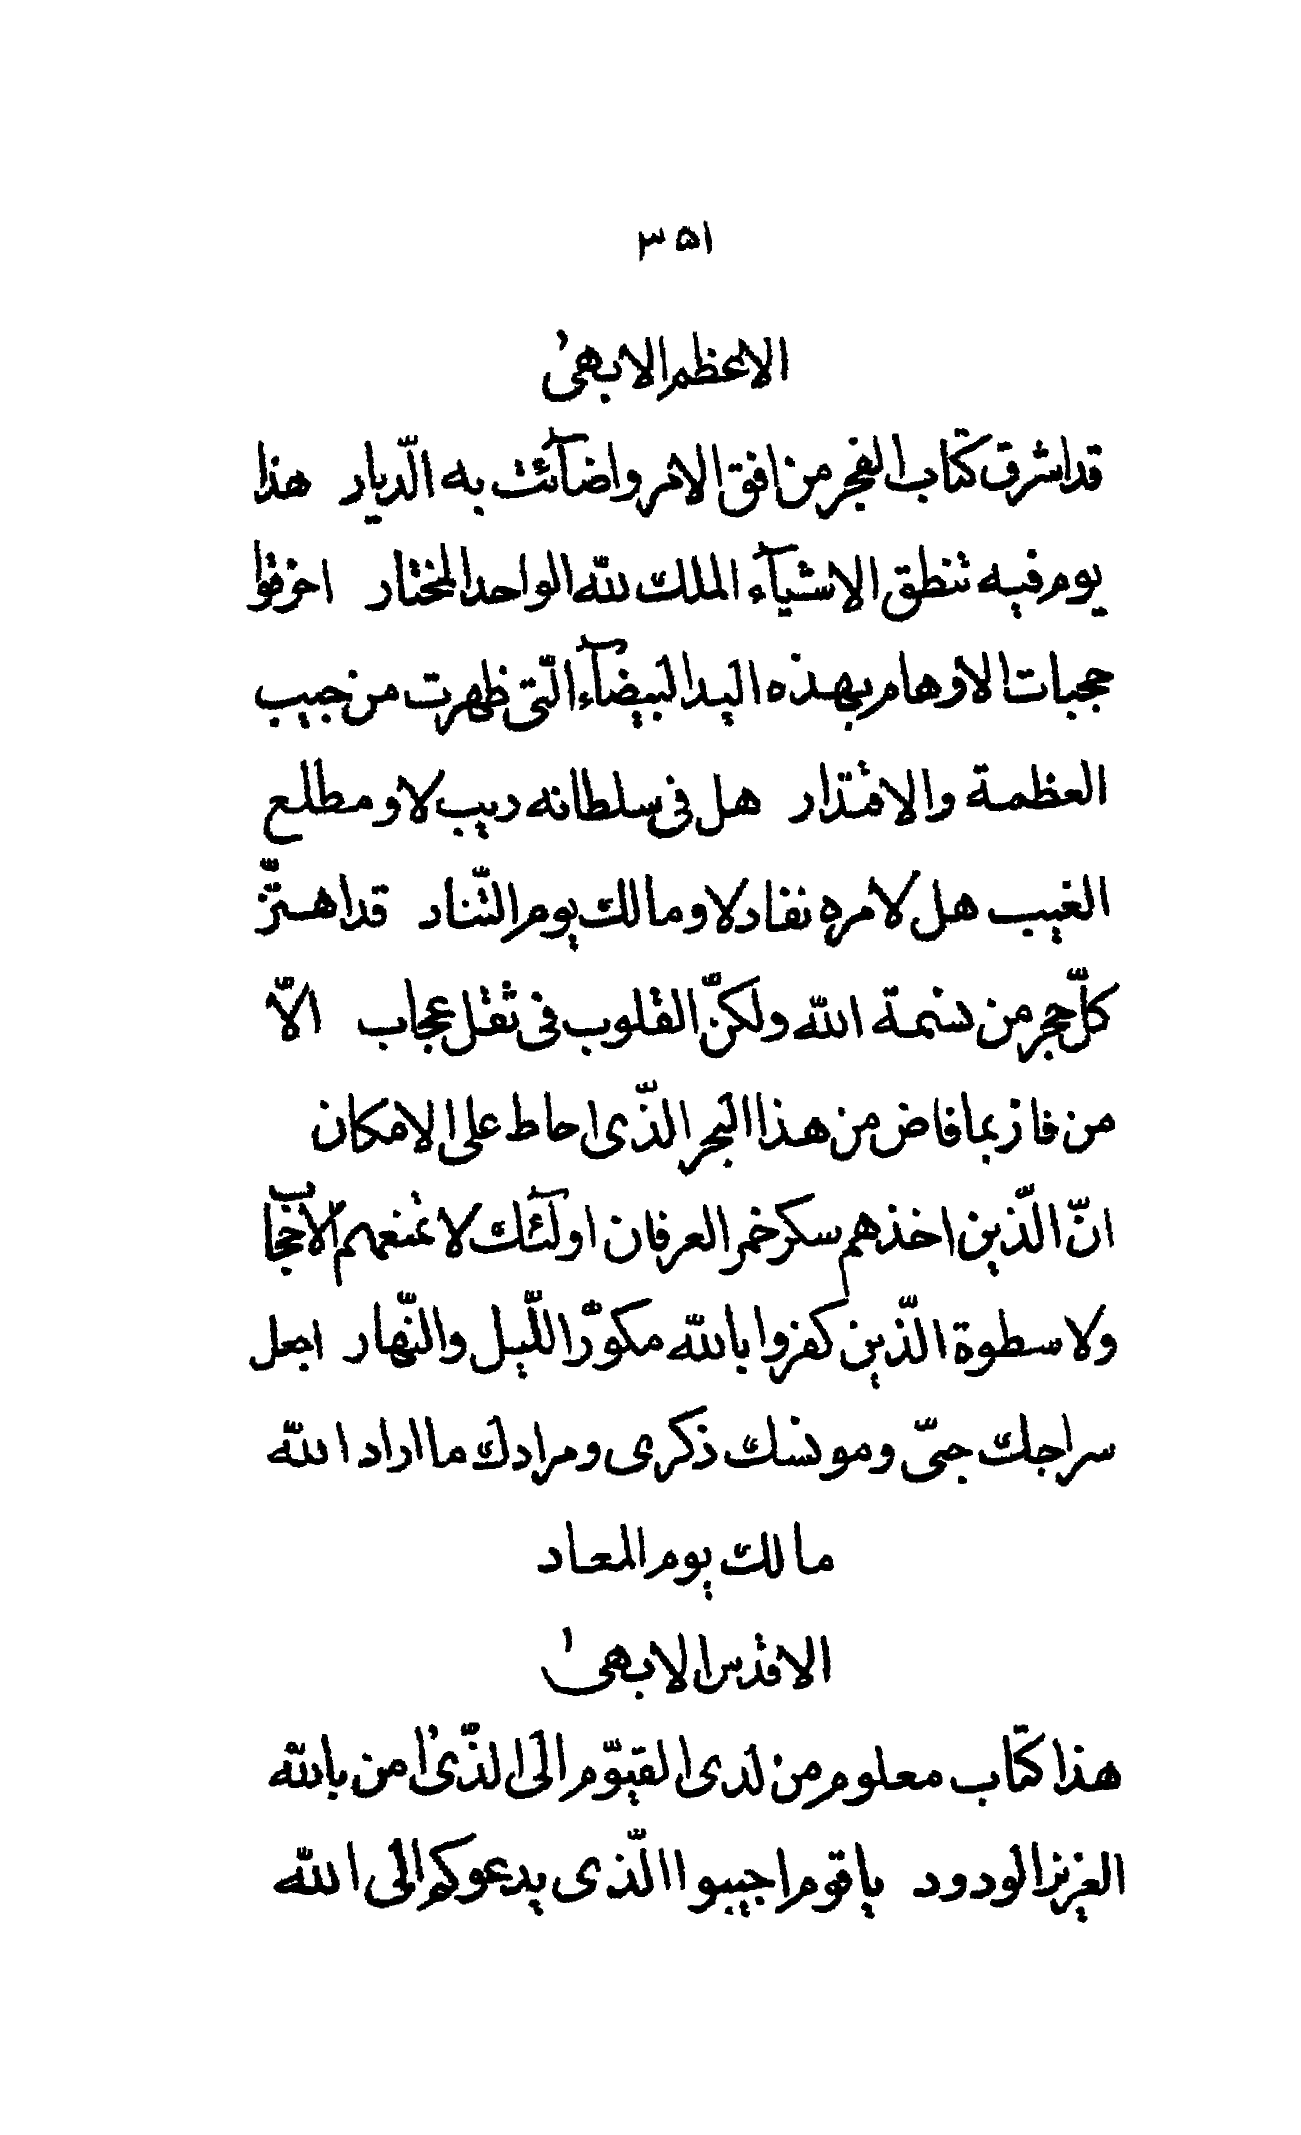 ٣٥١
الاعظم الابهىٰ
قد اشرق كتاب الفجر من افق الامر واضآئت به الدّيار هذا
يوم فيه تنطق الاشيآء الملك للّه الواحد المختار اخرقوا
حجبات الاوهام بهذه اليد البيضآء الّتى ظهرت من جيب
العظمة والاقتدار هل فى سلطانه ريب لا ومطلع
الغيب هل لامره نفاد لا ومالك يوم التّناد قد اهتزّ
كلّ حجر من نسمة اللّه ولكنّ القلوب فى ثقل عجاب الّا
من فاز بما فاض من هذا البحر الّذى احاط على الامكان
انّ الّذين اخذهم سكر خمر العرفان اولئك لا تمنعهم الاحجاب
ولا سطوة الّذين كفروا باللّه مكوّر اللّيل والنّهار اجعل
سراجك حبّى ومونسك ذكرى ومرادك ما اراد اللّه
مالك يوم المعاد
الاقدس الابهىٰ
هذا كتاب معلوم من لدى القيّوم الى الّذى امن باللّه
العزيز الودود يا قوم اجيبوا الّذى يدعوكم الى اللّه